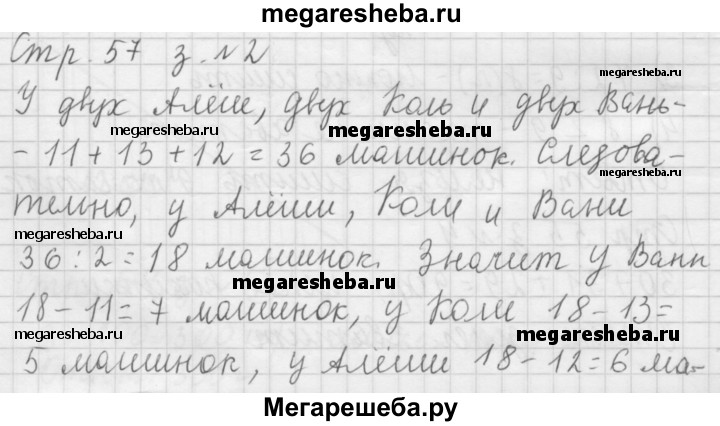 megaresheba.ru
Стр. 57 з. №2
megaresheba.ru
У двух Алёш, двух Коль и двух Вань-
megaresheba.ru megaresheba.ru
- 11 + 13 + 12 = 36 машинок. Следова-
тельно, у Алёши, Коли и Вани
megaresheba.ru megaresheba.ru
36 : 2 = 18 машинок. Значит у Вани
megaresheba.ru
18 - 11 = 7 машинок, у Коли 18 - 13 =
megaresheba.ru megaresheba.ru
5 машинок, у Алёши 18 - 12 = 6 ма-
Мегарешеба.ру